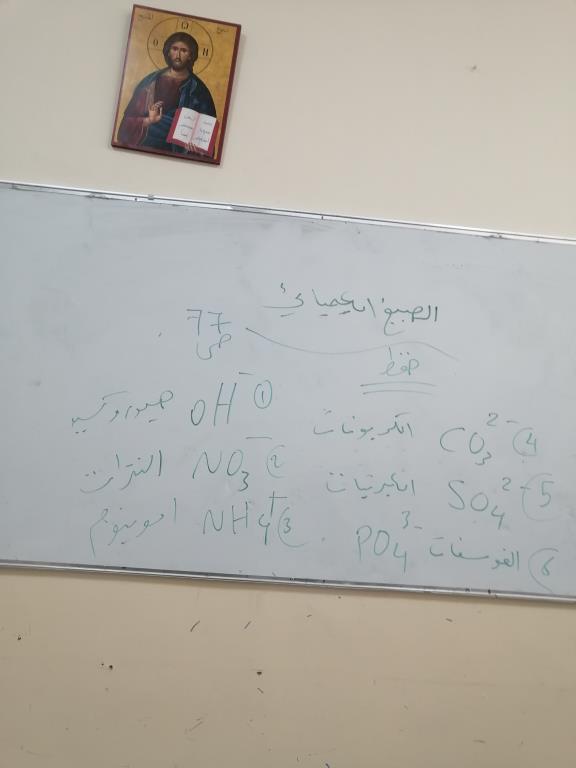 الصيغ الكيميائي
ص 77
حفظ
① OH⁻ هيدروكسيد
② NO₃⁻ النترات
③ NH₄⁺ امونيوم
④ CO₃²⁻ الكربونات
⑤ SO₄²⁻ الكبريتات
⑥ PO₄³⁻ الفوسفات
Ο Ω Ν